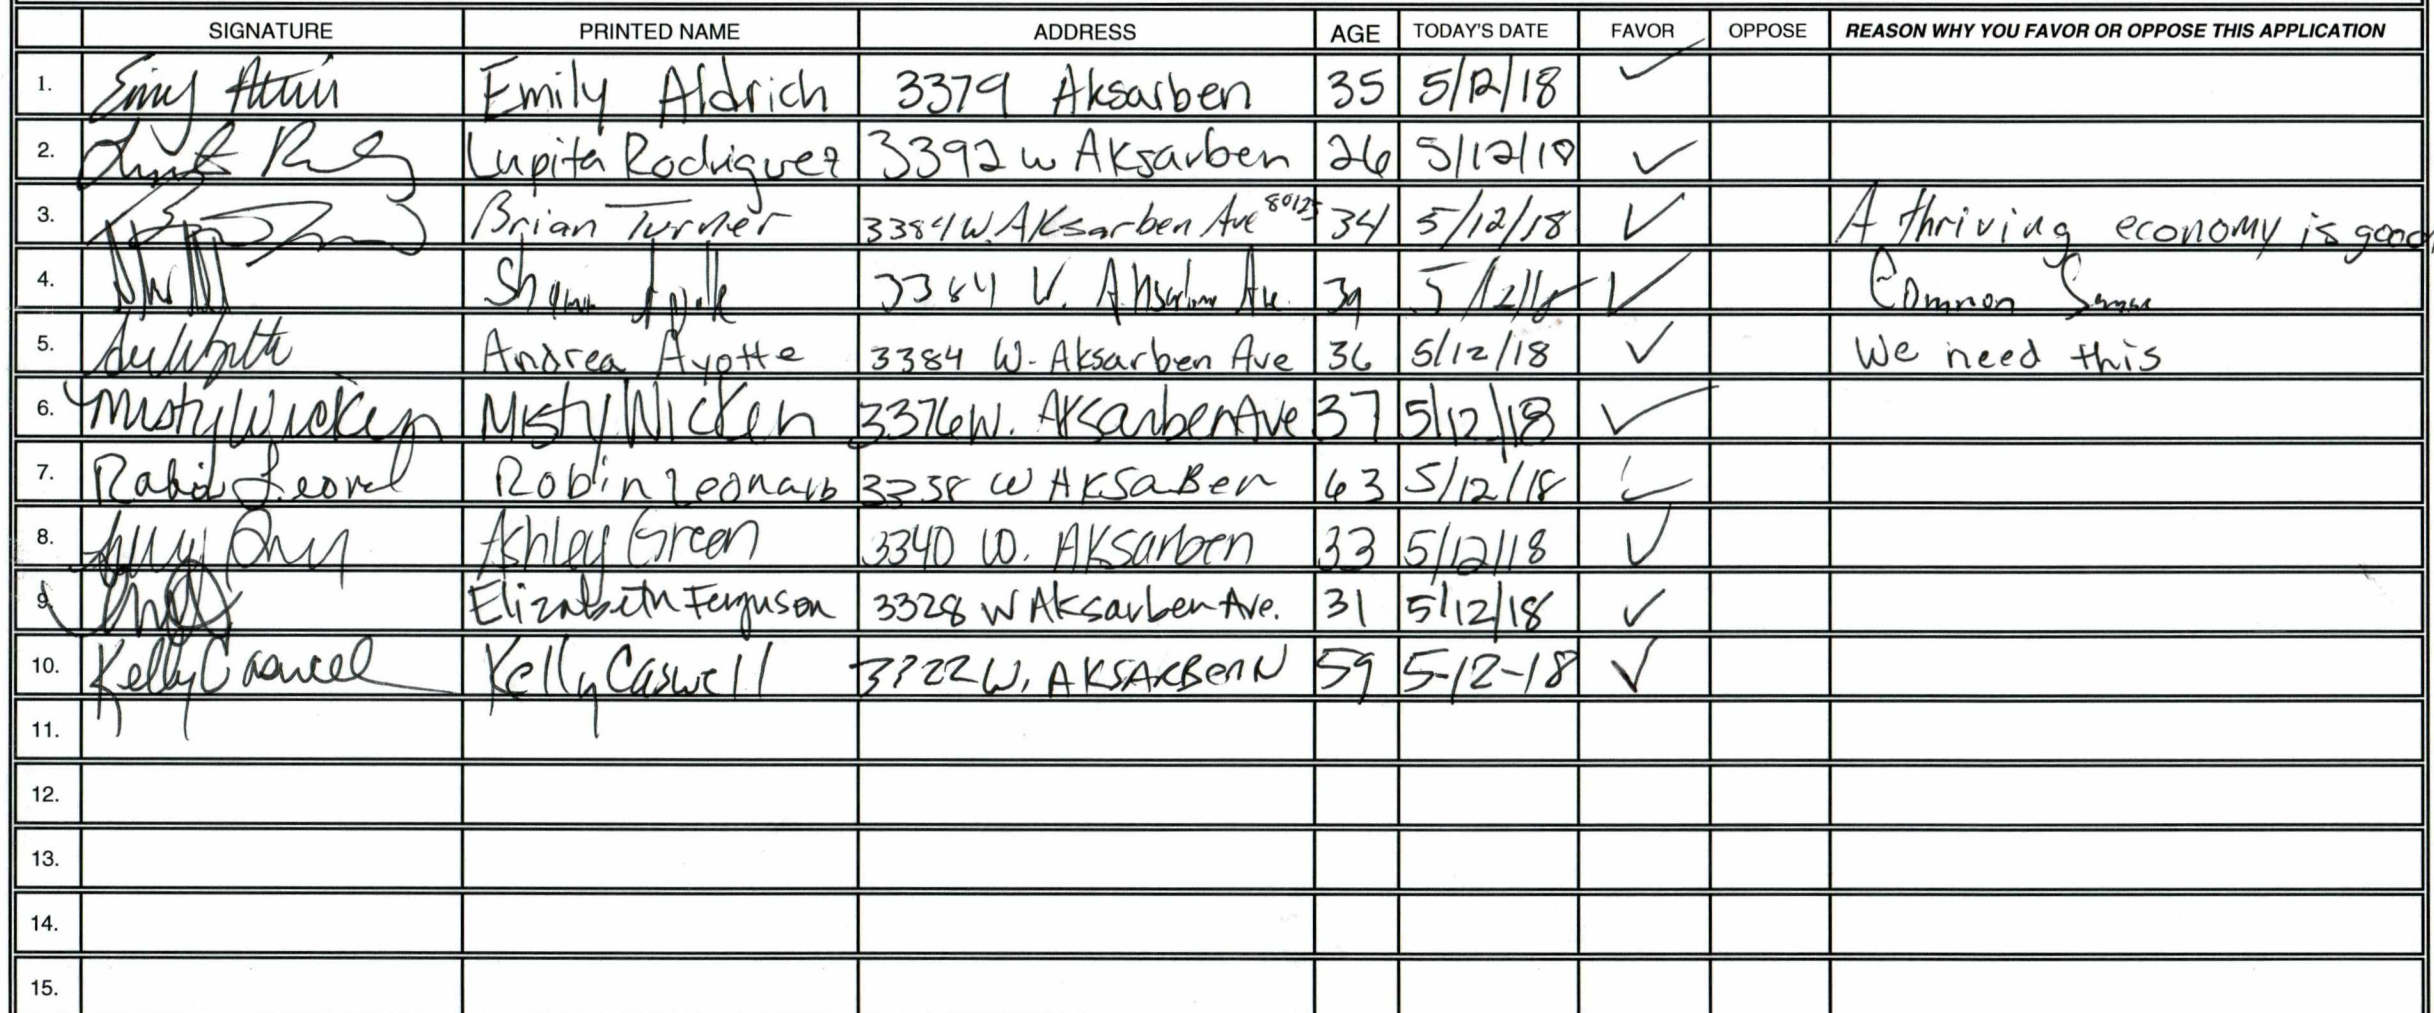 SIGNATURE PRINTED NAME ADDRESS AGE TODAY'S DATE FAVOR OPPOSE REASON WHY YOU FAVOR OR OPPOSE THIS APPLICATION
1. Emily Aldrich 3379 Aksarben 35 5/12/18 ✓
2. Lupita Rodriguez 3392 W Aksarben 26 5/12/18 ✓
3. Brian Turner 3384 W. Aksarben Ave 80123 34 5/12/18 ✓ A thriving economy is good
4. 3384 W. Aksarben Ave. 39 5/12/18 ✓ Common Sense
5. Andrea Ayotte 3384 W. Aksarben Ave 36 5/12/18 ✓ We need this
6. Misty Wicken Misty Wicken 3376 W. Aksarben Ave 37 5/12/18 ✓
7. Robin Leonard Robin Leonard 3358 W AKSaBen 63 5/12/18 ✓
8. Ashley Green 3340 W. AKSarben 33 5/12/18 ✓
9. Elizabeth Ferguson 3328 W Aksarben Ave. 31 5/12/18 ✓
10. Kelly Caswell Kelly Caswell 3322 W. AKSARBEN 59 5-12-18 ✓
11.
12.
13.
14.
15.